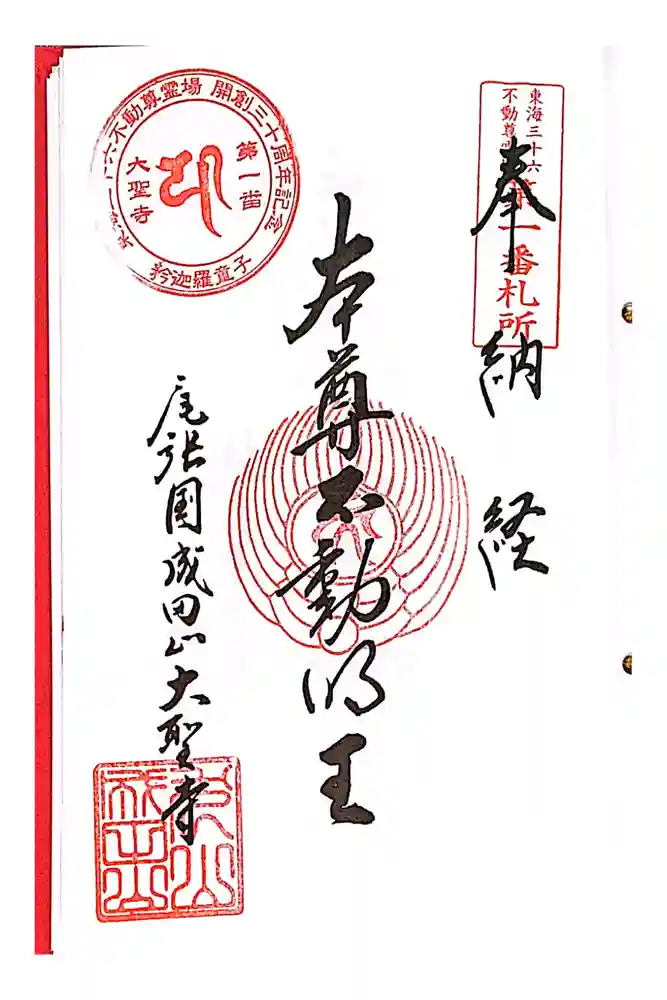 東海三十六
不動尊
第一番札所
奉納経
本尊不動明王
尾張国成田山大聖寺
十六不動尊霊場 開創三十周年記念
第一番
大聖寺
矜迦羅童子